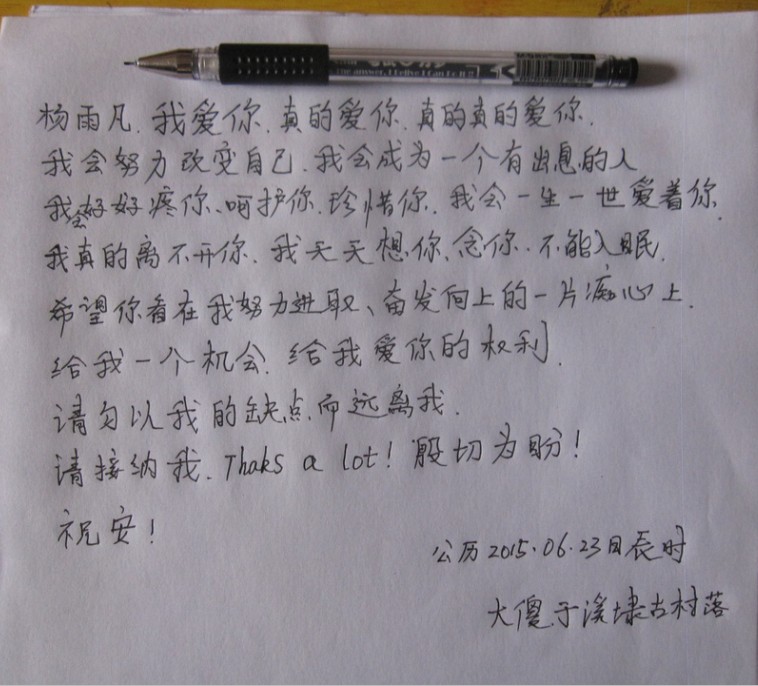 杨雨凡.我爱你.真的爱你.真的真的爱你.
我会努力改变自己.我会成为一个有出息的人
我会好好疼你、呵护你.珍惜你.我会一生一世爱着你.
我真的离不开你.我天天想你、念你.不能入眠.
希望你看在我努力进取、奋发向上的一片痴心上.
给我一个机会.给我爱你的权利.
请勿以我的缺点而远离我.
请接纳我.Thaks a lot!殷切为盼!
祝安!
公历2015.06.23日辰时
大傻于溪埭古村落